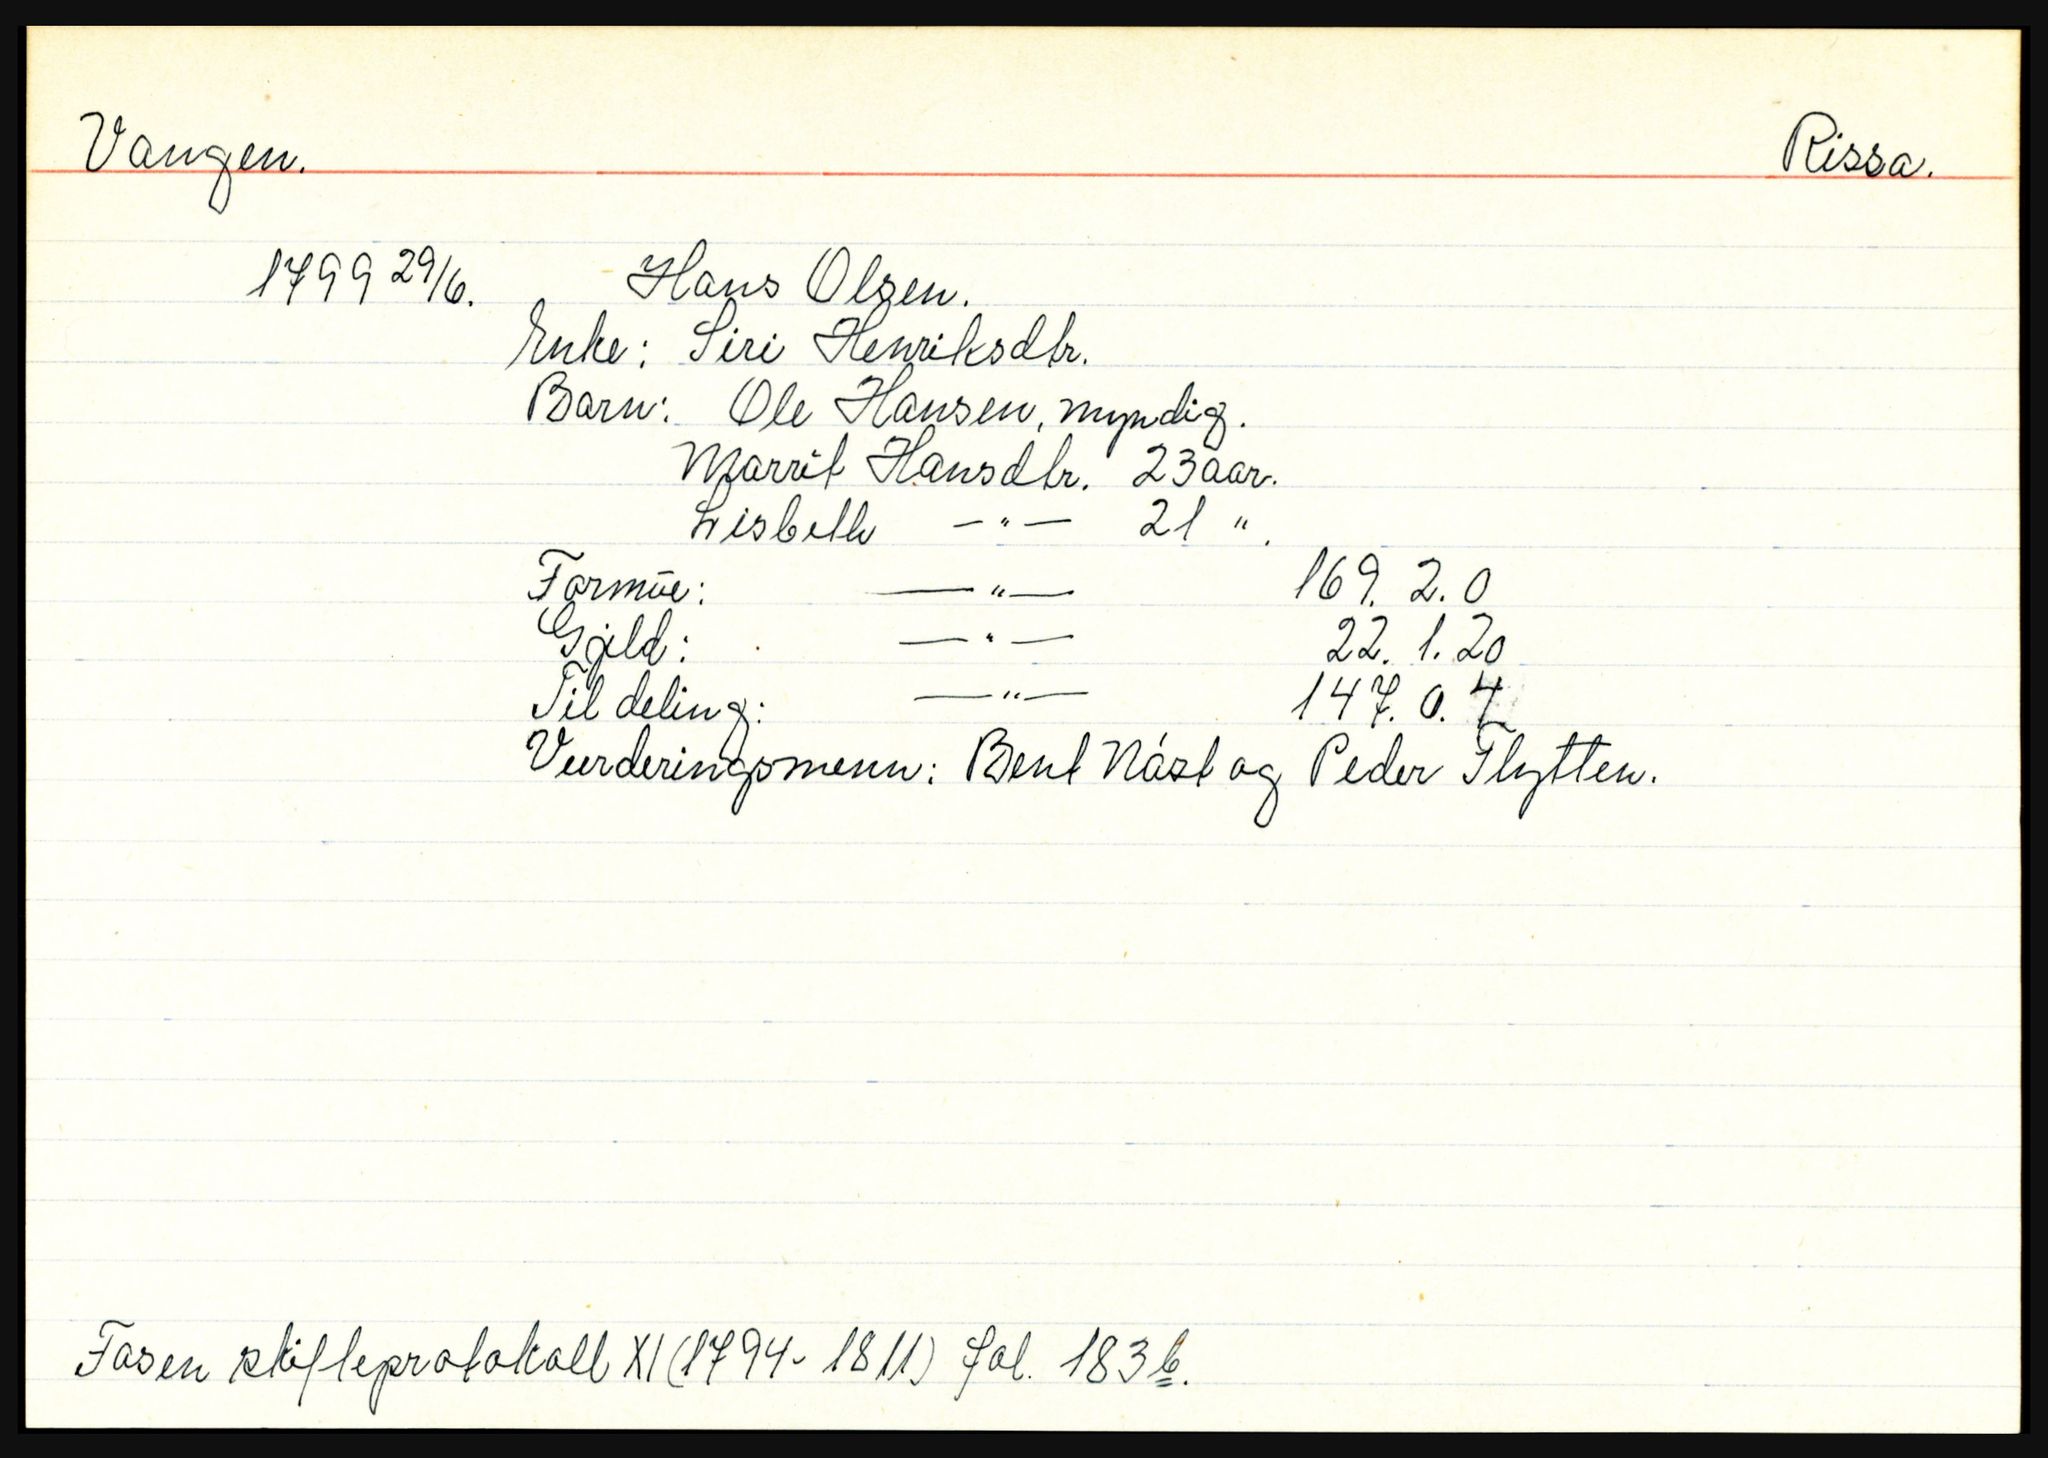 Vangen. Rissa.
1799 29/6. Hans Olsen.
Enke: Siri Henriksdtr.
Barn: Ole Hansen, myndig.
Marrit Hansdtr. 23 aar.
Lisbeth —"— 21 ".
Formūe: —"— 169. 2. 0
Gjeld: —"— 22. 1. 20
Til deling: —"— 147. 0. 4
Vurderingsmenn: Bent Næst og Peder Flytten.
Fosen skifteprotokoll XI (1794-1811) fol. 183b.